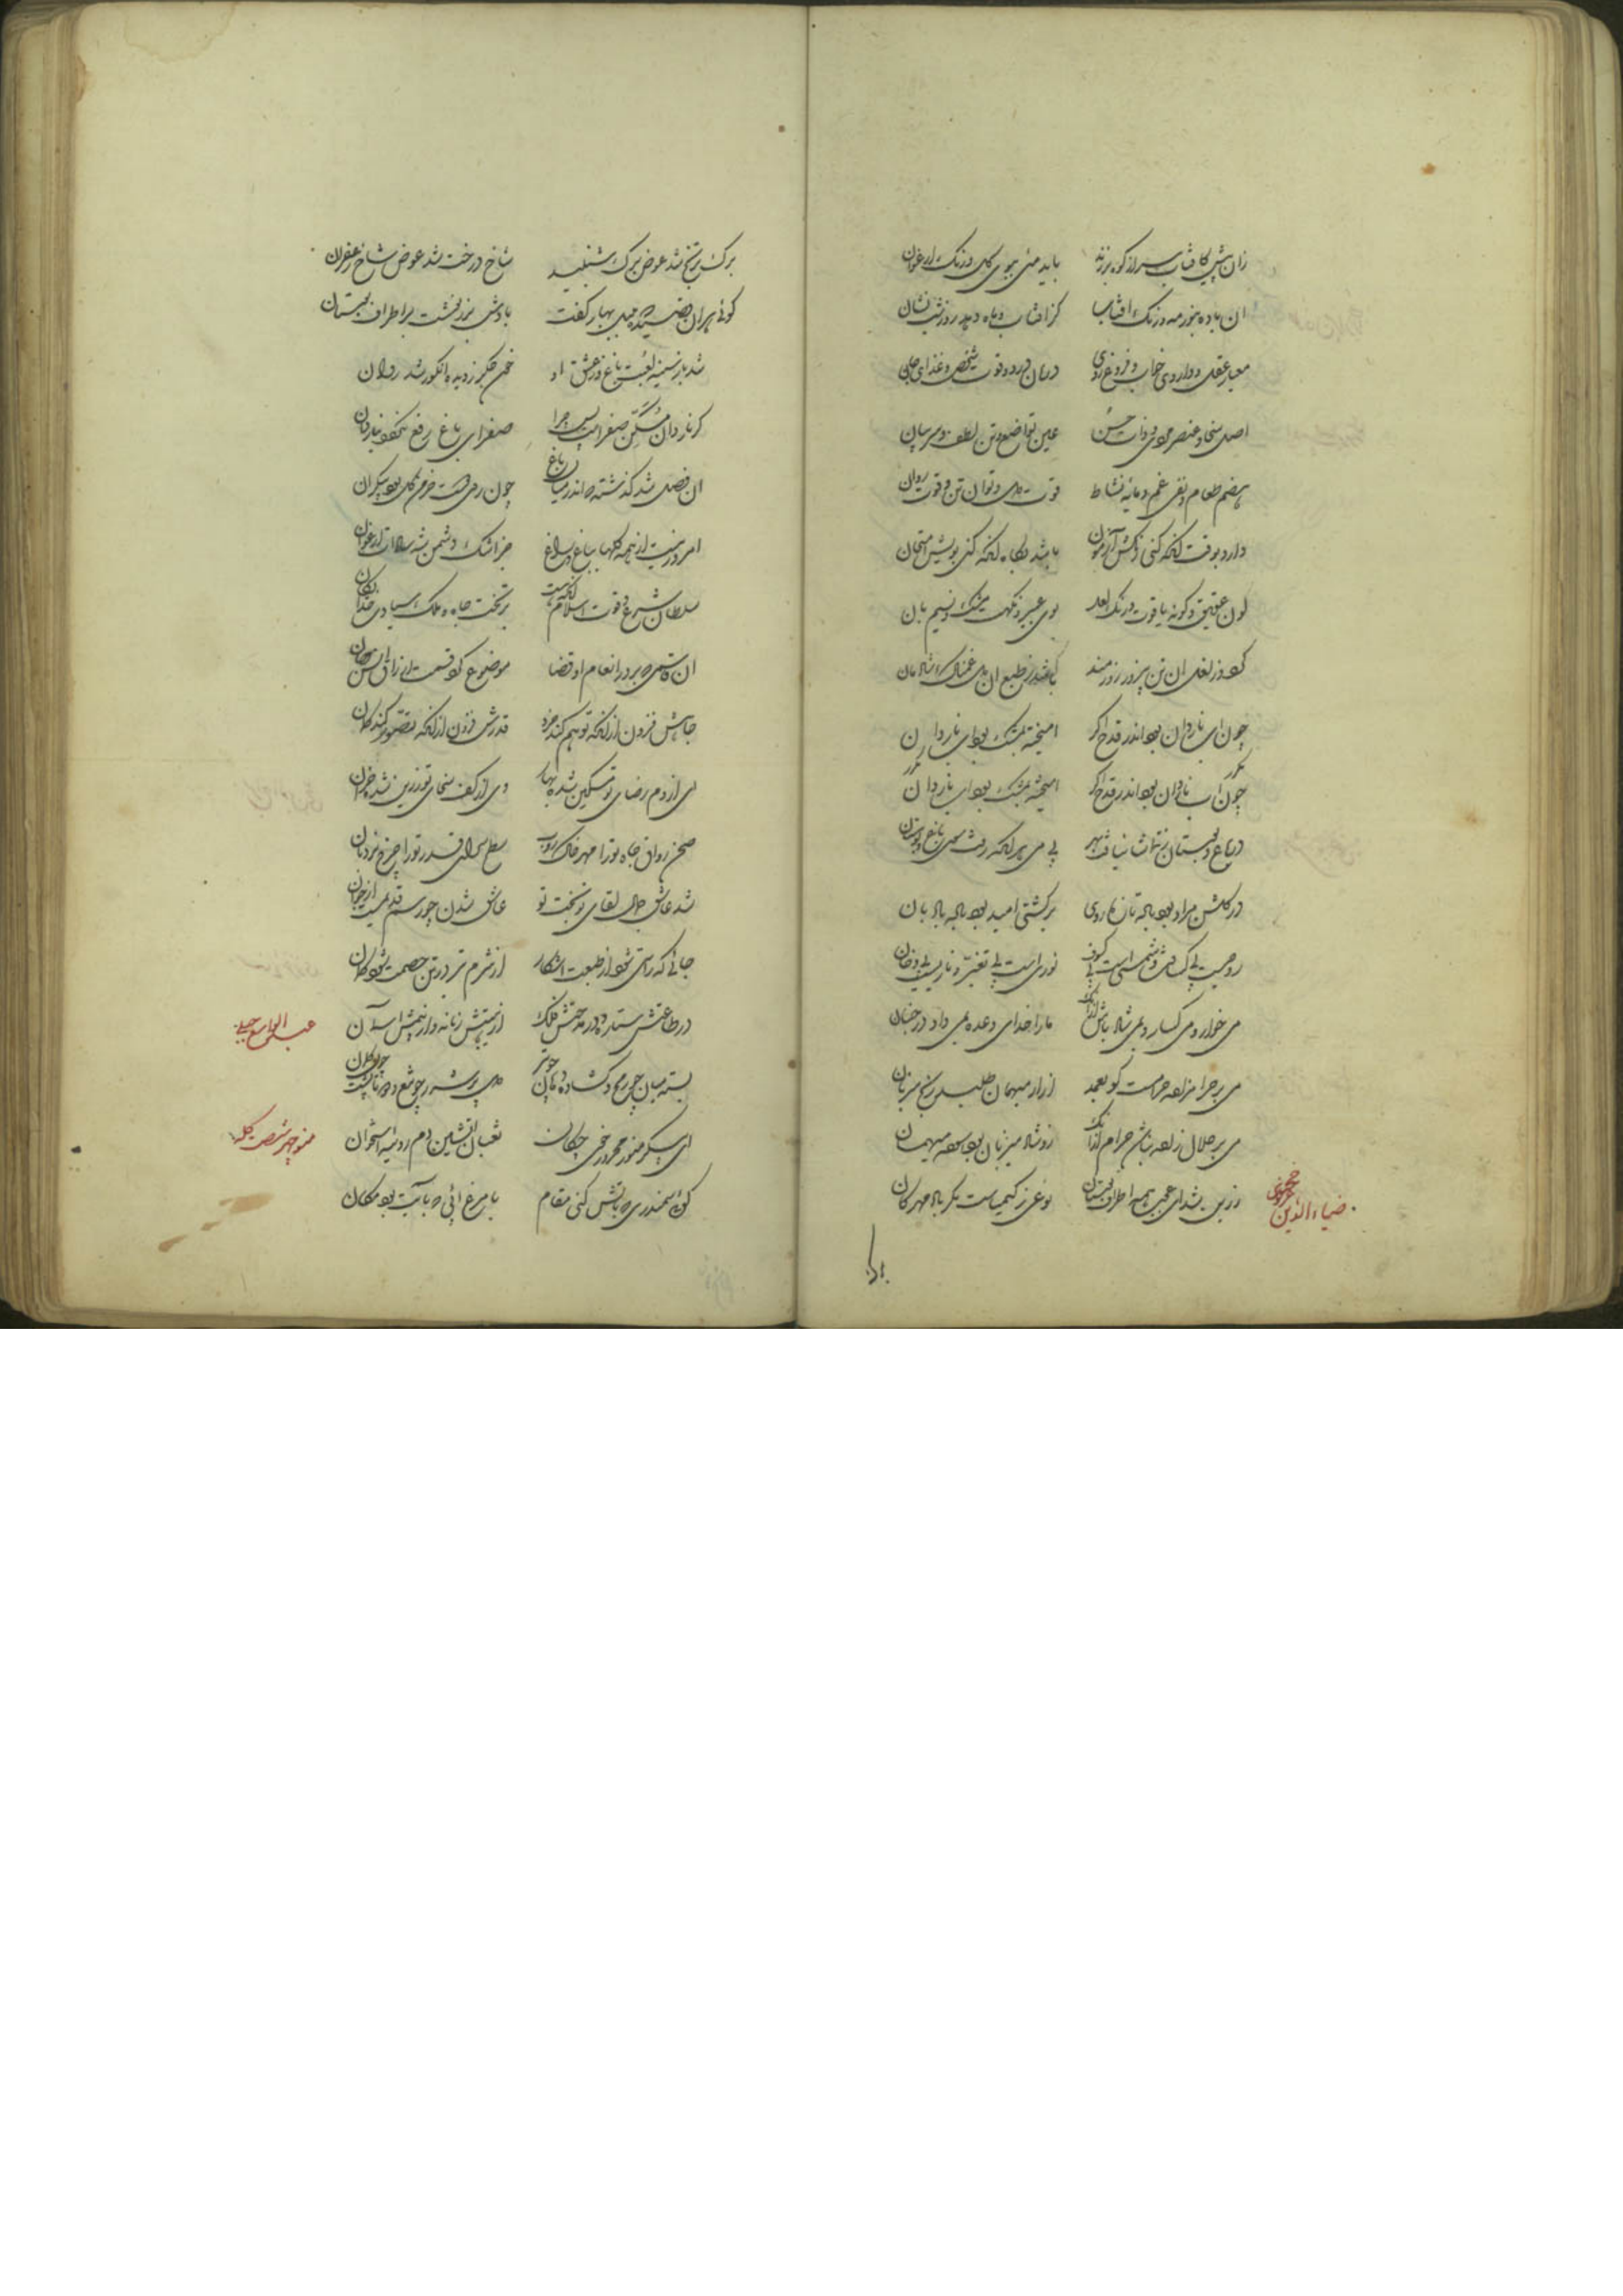 زان پیش کافتاب سر از کوه برزند باید میی ببوی گل و رنگ ارغوان
ان باده بنور مه و رنگ افتاب کز افتاب و ماه دهد روز و شب نشان
معیار عقل و داروی خواب و فروغ روی درمان درد و قوت شخص و غذای جان
اصل سخا و عنصر مردی و ذات حسن عین تواضع و تن لطف و سر بیان
هضم طعام و نفی غم و مایه نشاط قوت دل و توان تن و قوت روان
دارد بوقت انکه کنی رنگش آزمون باشد بگاه انکه کنی بویش امتحان
لون عقیق و گونه یاقوت و رنگ لعل بوی عبیر و نکهت مشک و نسیم بان
گردد ز لعل ان تن پیر و زورمند باشد ز طبع ان دل غمناک شادمان
چون ای ناردان بود اندر قدح اگر امیخته بمشک بود اب ناردان
چون اب ناردان بود اندر قدح اگر امیخته بمشک بود اب ناردان
در باغ و بوستان تماشا نیافت بهر بی می هر انکه رفت سوی باغ و بوستان
در گلشن مراد بود باده تازه روی بر کشتی امید بود باده بادبان
روحیست بی کسافت و شمسی است بی کسوف نوری است بی تغیر و ناریست بی دخان
می خوار و می گسار و بمی شاد باش ازانک ما را خدای وعده بمی داد در جنان
می بر حرامزاده حرامست کو بعمد ازار میهمان طلبد رنج میزبان
می بر حلال زاده نباشد حرام ازانک زو شاد میزبان بود اسوده میهمان
ضیاء الدین خجندی زرین شد ای عجب همه اطراف بوستان نوعی ز کیمیاست مگر باد مهرکان
برک ترنج شد عوض برک شنبلید شاخ درخت شد عوض شاخ زعفران
گوئی هران چه بهار گفت بادش برزنخشت بر اطراف بوستان
شد باز سینه لعبت باغ و ز عشق او خون جگر ز دیده انگور شد روان
کر ناردان مسکن صفراست پس چرا صفرای باغ رفع نگردد بناردان
ان فصل شد گذشته که اندر میان باغ چون روی دوست خرم گل بود بیکران
امروز نیست از همه گلها بباغ و راغ جز اشک دشمن شه سادات ارغوان
سلطان شرع و قوت اسلام انکه هست بر تخت جاه و ملک سیادت خدایگان
ان که برد در انعام او قضا موضوع کرد قسمت ارزاق انس و جان
جاهش فزون از انکه توهم کند خرد قدرش فزون ازانکه تصور کند گمان
ای از دم رضای تو مسکین شده بهار وی از کف سخای تو زرین شده خزان
صحن رواق جاه ترا مهر خاک روب سطح سرای قدر ترا چرخ نردبان
شد عاشق جمال لقای تو بخت تو عاشق شدن چو رسم قدیمیست از جهان
جائی که راستی شود از طبعت اشکار از شرم تیر در تن خصمت شود کمان
عبدالواسع جبلی در طاعتش ستاره و در مدحتش فلک از نیتش زمانه و از همتش آسمان
بسته میان چو رمح و گشاده دهان چو تیر
منوچهر شصت کله ای پیکر منور محرور خوی چکان ثعبان اتشین دم روئینه استخوان
گوئی سمندری که باتش کنی مقام یا مرغ ابئی که بابت بود مکان